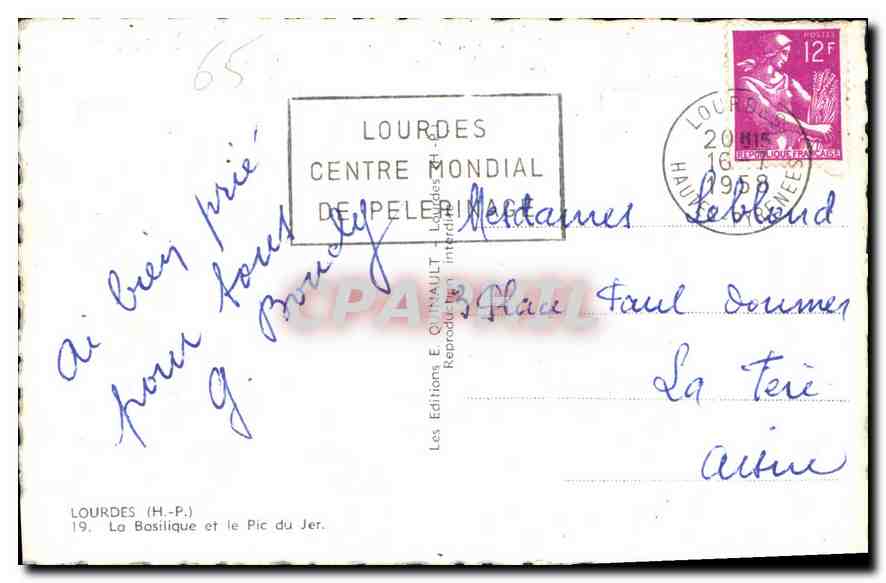 65
POSTES
12F
REPUBLIQUE FRANÇAISE
LOURDES
CENTRE MONDIAL
DE PELERINAGE
LOURDES
20H15
16-7
1958
HAUTES PYRENEES
ai bien prié
pour tous
g. Boudy
Mesdames Leblond
3 Place Paul Doumer
La Fère
Aisne
Les Editions E. QUINAULT - Lourdes (H.-P.)
Reproduction interdite
CPAPHIL
LOURDES (H.-P.)
19. La Basilique et le Pic du Jer.